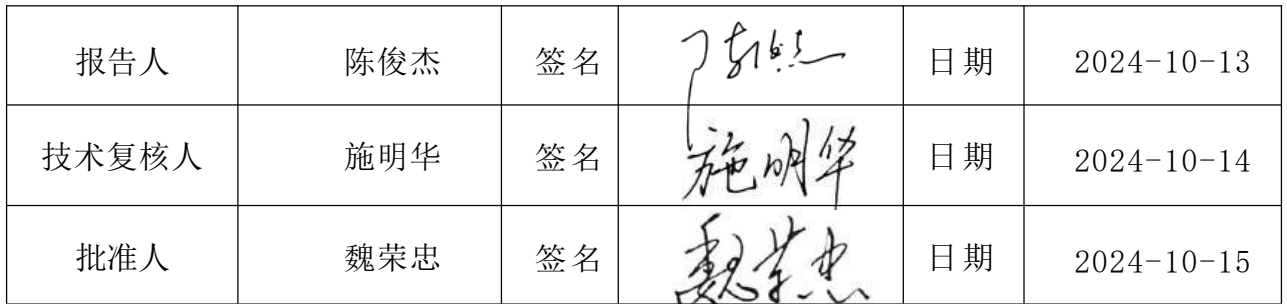 报告人 陈俊杰 签名 陈俊杰 日期 2024-10-13
技术复核人 施明华 签名 施明华 日期 2024-10-14
批准人 魏荣忠 签名 魏荣忠 日期 2024-10-15